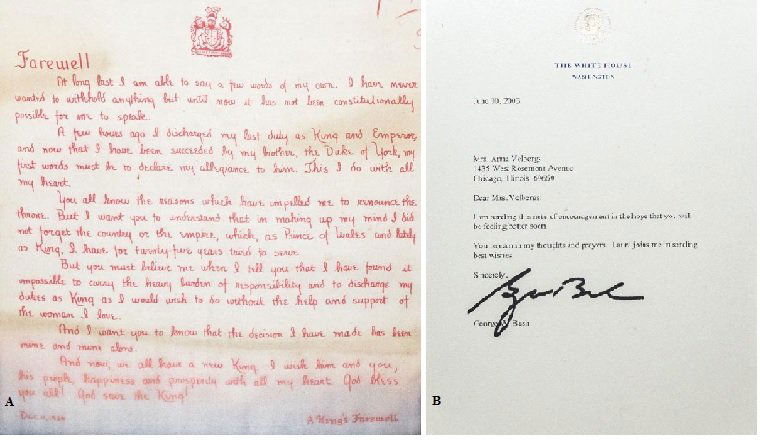 Farewell
At long last I am able to say a few words of my own. I have never
wanted to withhold anything but until now it has not been constitutionally
possible for me to speak.
A few hours ago I discharged my last duty as King and Emperor,
and now that I have been succeeded by my brother, the Duke of York, my
first words must be to declare my allegiance to him. This I do with all
my heart.
You all know the reasons which have impelled me to renounce the
throne. But I want you to understand that in making up my mind I did
not forget the country or the empire, which, as Prince of Wales and lately
as King, I have for twenty five years tried to serve.
But you must believe me when I tell you that I have found it
impossible to carry the heavy burden of responsibility and to discharge my
duties as King as I would wish to do without the help and support of
the woman I love.
And I want you to know that the decision I have made has been
mine and mine alone.
And now, we all have a new King. I wish him and you,
his people, happiness and prosperity with all my heart. God bless
you all! God save the King!
A King's Farewell
A
THE WHITE HOUSE
WASHINGTON
June 30, 2003
Mrs. Anna Velbergs
1435 West Rosemont Avenue
Chicago, Illinois
Dear Mrs. Velbergs
I am sending this note of encouragement in the hope that you will
be feeling better soon.
You are in my thoughts and prayers. Laura joins me in sending
best wishes.
Sincerely,
George W. Bush
B